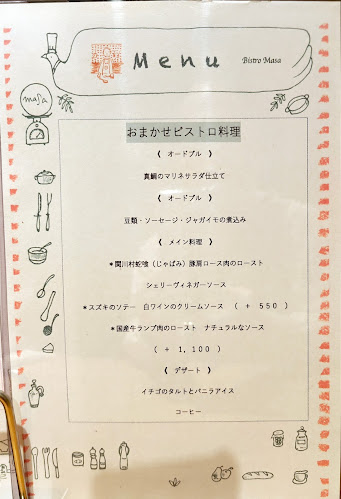 Menu
Bistro Masa
masa
おまかせビストロ料理
《 オードブル 》
真鯛のマリネサラダ仕立て
《 オードブル 》
豆類・ソーセージ・ジャガイモの煮込み
《 メイン料理 》
＊関川村蛇喰（じゃばみ）豚肩ロース肉のロースト
シェリーヴィネガーソース
＊スズキのソテー 白ワインのクリームソース （ ＋ ５５０ ）
＊国産牛ランプ肉のロースト ナチュラルなソース
（ ＋ １，１００ ）
《 デザート 》
イチゴのタルトとバニラアイス
コーヒー